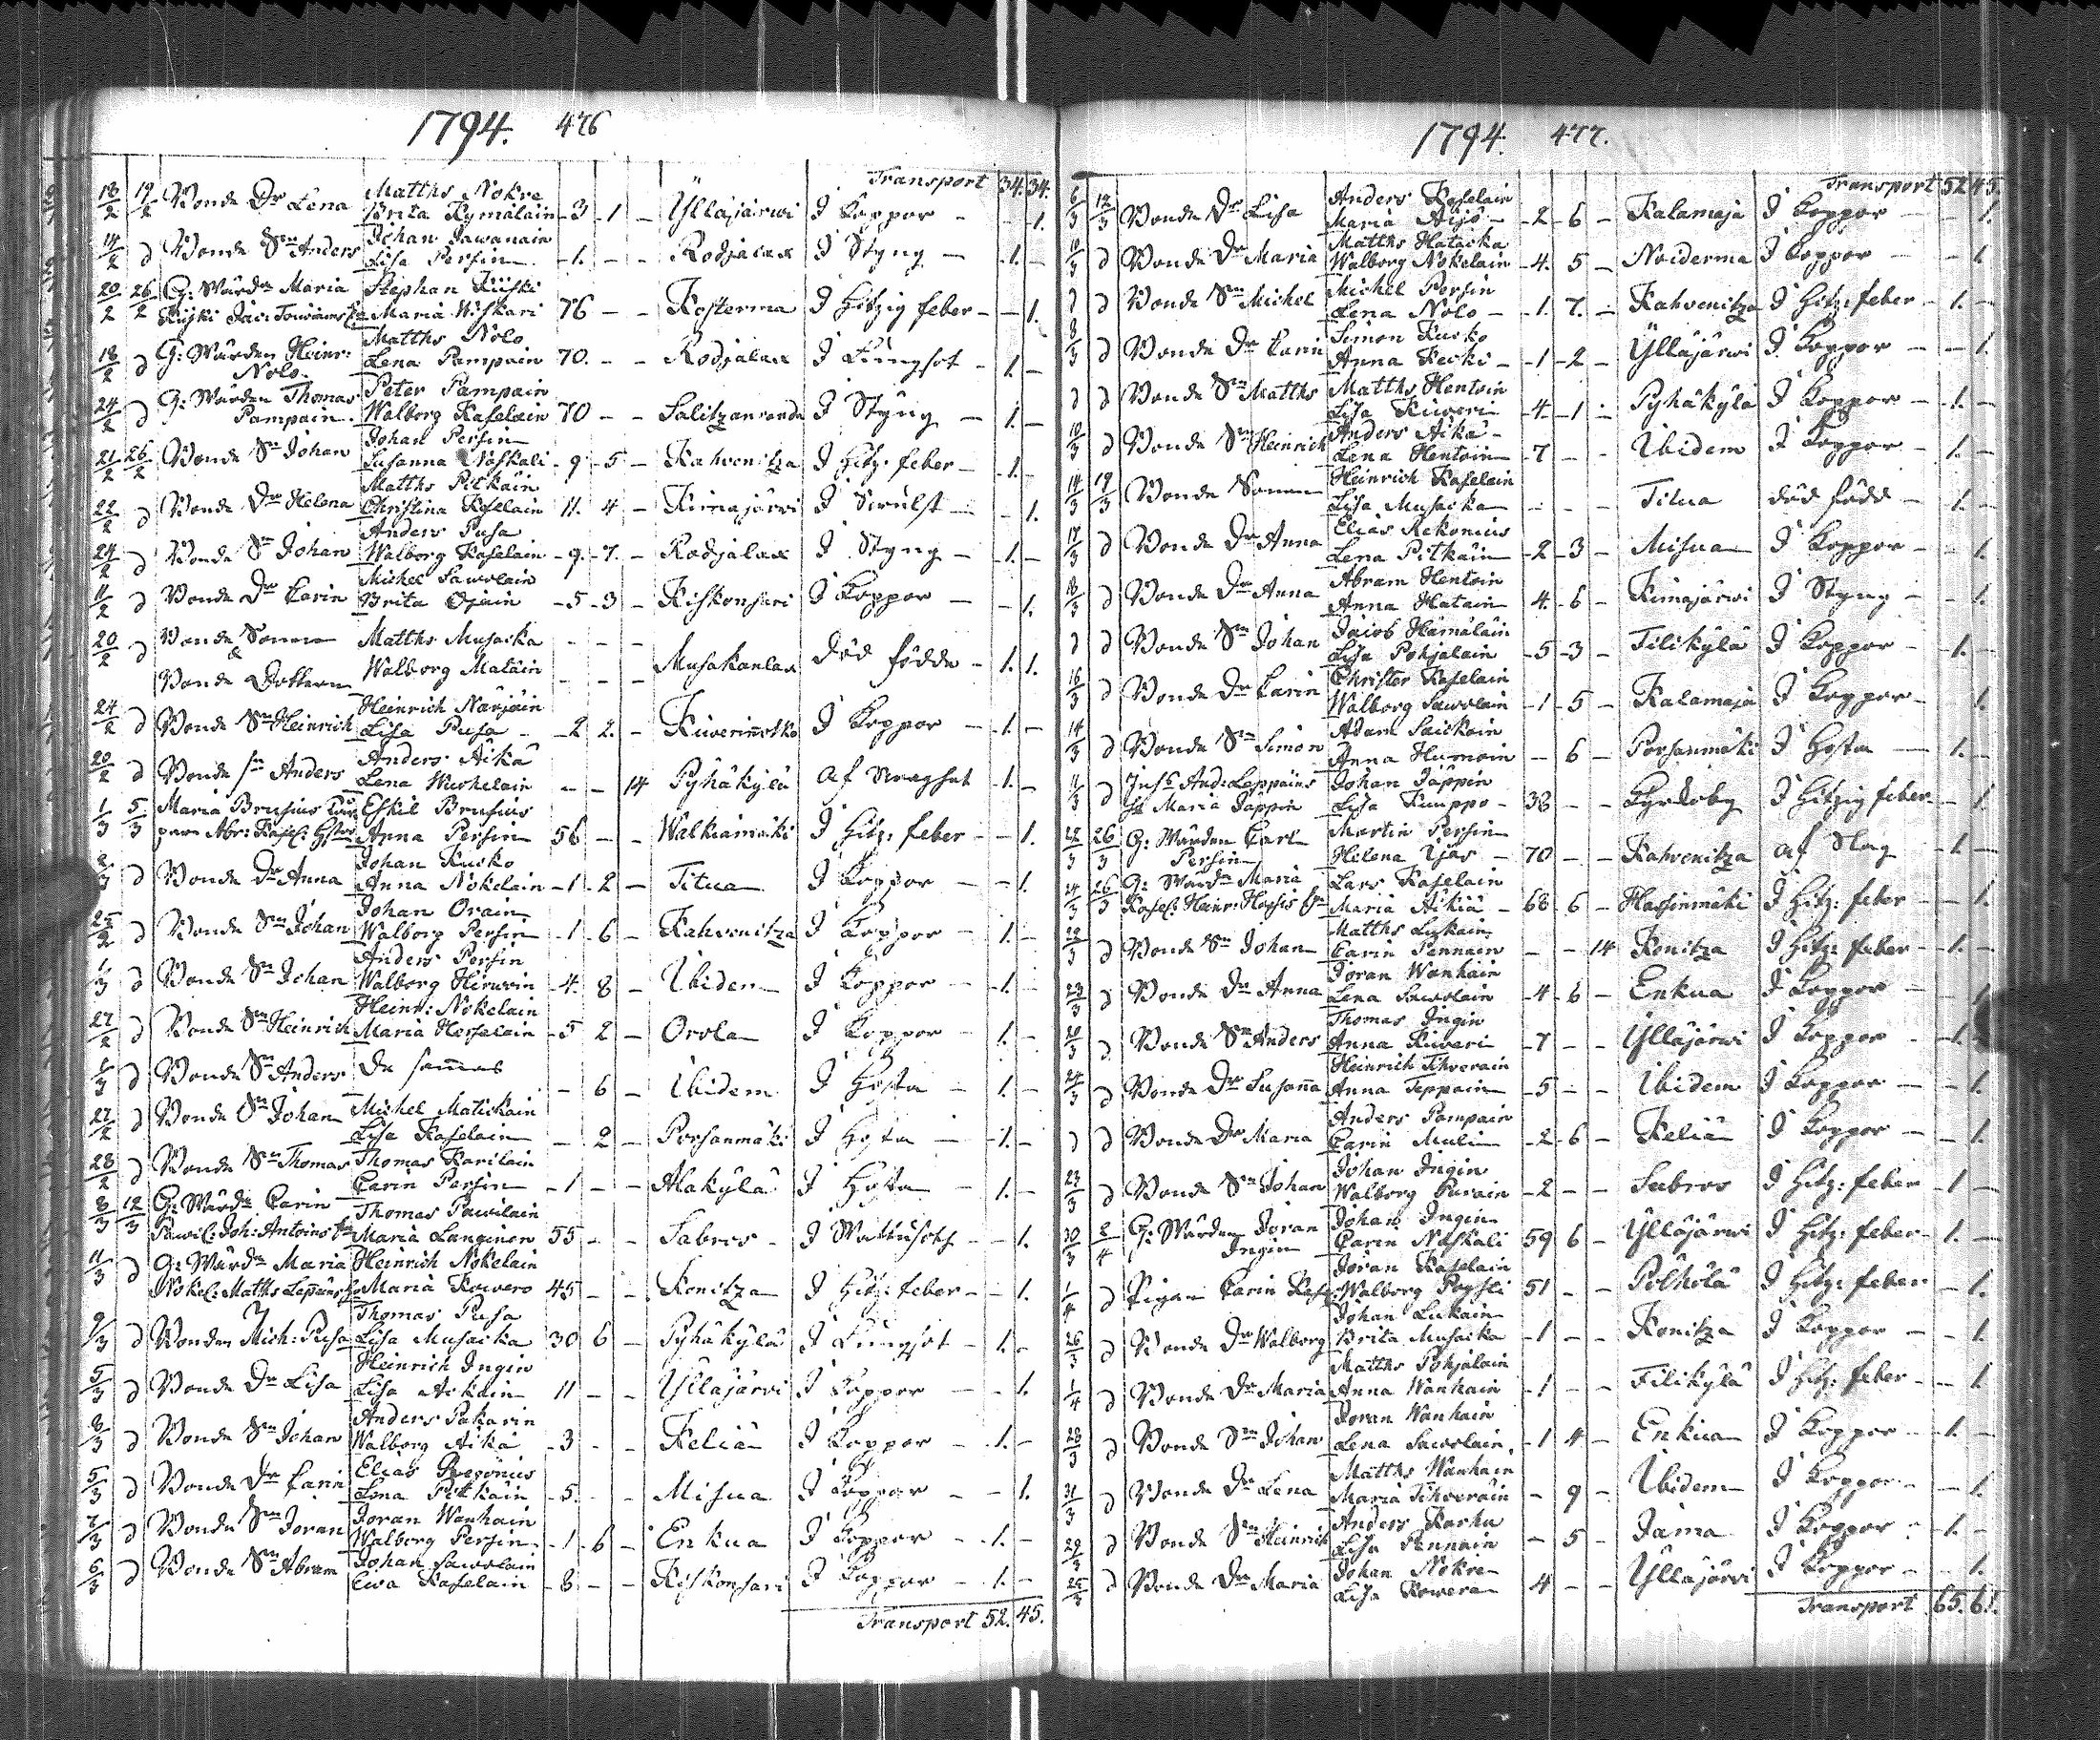 1794. 476
Transport 34. 34.
18/2 19/2 Bonde Dr Lena Matths Nokre
Brita Kymäläin 3 1 Ylläjärwi I Koppor 1.
14/2 d Bonde Sn Anders Johan Jawanain
Lisa Persin 1. Rodjalax I Styng 1.
20/2 26/2 G: Wärdn Maria Stephan Kiiski
Maria Wiskari 76 Kosterma I Hitzig feber 1.
18/2 d G: Wärden Heinr: Matths Nolo
Nolo. Lena Pampain 70. Rodjalax I Lungsot 1.
24/2 d G: Wärden Thomas Peter Pampain
Pampain. Walborg Kaselain 70 Salitzanranda I Styng 1.
21/2 26/2 Bonde Sn Johan Johan Persin
Susanna Naskali 9 5 Kahvenitza I Hitz: feber 1.
22/2 d Bonde Dr Helena Matths Pitkäin
Christina Kaselain 11. 4 Kimajärvi I Swulst 1.
24/2 d Bonde Sn Johan Anders Pusa
Walborg Kaselain 9 7. Rodjalax I Styng 1.
11/2 d Bonde Dr Carin Michel Sawolain
Brita Ojain 5 3 Kiskonsari I Koppor 1.
20/2 d Bonde Sonen Matths Musacka
&
Bonde Dottren Walborg Matäin Musakanlax död födde 1. 1.
24/2 d Bonde Sn Heinrich Heinrich Närjäin
Lisa Pusa 2 2. Kiwerinotko I Koppor 1.
20/2 d Bonde sn Anders Anders Äikä
Lena Warhelain 14 Pyhäkylä 1.
1/3 5/3 Maria Brusius Eskil Brusius
Anna Persin 56 Walkiamäki I Hitz: feber 1.
2/3 d Bonde Dr Anna Johan Kusko
Anna Nokelain 1 2 Titua I Koppor 1.
25/2 d Bonde Sn Johan Johan Orain
Walborg Persin 1 6 Kahvenitza I Koppor 1.
1/3 d Bonde Sn Johan Anders Persin
Walborg Hirwoin 4. 8 Ibidem I Koppor 1.
27/2 d Bonde Sn Heinrich Heinr: Nokelain
Maria Hesselain 5 2 Orola I Koppor 1.
1/3 d Bonde Sn Anders De sammas
6 Ibidem I Hosta 1.
27/2 d Bonde Sn Johan Michel Matickain
Lisa Kaselain 2 Porsanmäki I Hosta 1.
28/2 d Bonde Sn Thomas Thomas Karilain
Carin Persin 1 Alakylä I Hosta 1.
8/3 12/3 G: Wärdn Carin Thomas Pawilain
Pawil: Joh: Antoins Maria Langinen 55 Sabros I Wattusoth 1.
11/3 d G: Wärdn Maria Heinrich Nokelain
Nokel: Matths Lepäins Maria Kowero 45 Konitza I Hitz: feber 1.
9/3 d Bonden Mich: Pusa Thomas Pusa
Lisa Musacka 30 6 Pyhäkylä I Lungsot 1.
5/3 d Bonde Dr Lisa Heinrich Ingin
Lisa Ackäin 11 Ylläjärvi I Koppor 1.
8/3 d Bonde Sn Johan Anders Pakarin
Walborg Äikä 3 Keliä I Koppor 1.
5/3 d Bonde Dr Carin Elias Regonius
Lena Pitkäin 5. Misua I Koppor 1.
7/3 d Bonde Sn Joran Joran Wanhain
Walborg Persin 1 6 Enkua I Koppor 1.
6/3 d Bonde Sn Abram Johan Sawolain
Ewa Kaselain 8 Kiskonsari I Koppor 1.
Transport 52. 45.
1794. 477.
Transport 52 45.
6/3 12/3 Bonde Dr Lisa Anders Kaselain
Maria Äijö 2 6 Kalamaja I Koppor 1.
11/3 d Bonde Dr Maria Matths Hatacka
Walborg Nokelain 4. 5 Noiderma I Koppor 1
d d Bonde Sn Michel Michel Persin
Lena Nolo 1. 7. Kahvenitza I Hitz: feber 1.
8/3 d Bonde Dr Carin Simon Kusko
Anna Kecki 1 2 Ylläjärwi I Koppor 1.
d d Bonde Sn Matths Matths Hentoin
Lisa Kiweri 4. 1 Pyhäkylä I Koppor 1.
10/3 d Bonde Sn Heinrich Anders Äikä
Lena Hentoin 7 Ibidem I Koppor 1.
14/3 19/3 Bonde Sonen Heinrich Kaselain
Lisa Musacka Titua död född 1.
17/3 d Bonde Dr Anna Elias Rekonius
Lena Pitkäin 2 3 Misua I Koppor 1.
18/3 d Bonde Dr Anna Abram Hentoin
Anna Hatain 4. 6 Kimajärwi I Styng 1.
d d Bonde Sn Johan Jacob Hämäläin
Lisa Pohjalain 5 3 Tilikylä I Koppor 1.
16/3 d Bonde Dr Carin Christer Kaselain
Walborg Sawolain 1 5 Kalamaja I Koppor 1.
14/3 d Bonde Sn Simon Adam Saickoin
Anna Humoin 6 Porsanmäki I Hosta 1.
11/3 d And: Leppäins Johan Jäppin
Maria Jäppin Lisa Kumppo 38 Kyrckoby I Hitzig feber 1.
22/3 26/3 G: Wärden Carl Martin Persin
Persin Helena Ijäs 70 Kahvenitza af Slag 1.
24/3 26/3 G: Wärdn Maria Lars Kaselain
Kasel: Heinr: Maria Äikiä 68 6 Hassinmäki I Hitz: feber 1.
22/3 d Bonde Sn Johan Matths Lukain
Carin Pennain 14 Konitza I Hitz: feber 1.
23/3 d Bonde Dr Anna Joran Wanhain
Lena Sawolain 4 6 Enkua I Koppor
20/3 d Bonde Sn Anders Thomas Ingin
Anna Kiweri 7 Ylläjärwi I Koppor 1.
24/3 d Bonde Dr Susanna Heinrich Tihverain
Anna Teppain 5 Ibidem I Koppor 1.
d d Bonde Dr Maria Anders Pampain
Carin Mulin 2 6 Keliä I Koppor 1.
23/3 d Bonde Sn Johan Johan Ingin
Walborg Purain 2 Sabros I Hitz: feber 1
30/3 2/4 G: Wärden Joran Johan Ingin
Ingin Carin Naskali 59 6 Ylläjärwi I Hitz: feber 1.
1/4 d Pigan Carin Kasel: Joran Kaselain
Walborg Poysti 51 Pölhölä I Hitz: feber 1.
26/3 d Bonde Dr Walborg Johan Lukain
Brita Musacka 1 Konitza I Koppor 1.
1/4 d Bonde Dr Maria Matths Pohjalain
Anna Wanhain 1 Tilikylä I Hitz: feber 1.
28/3 d Bonde Sn Johan Joran Wanhain
Lena Sawolain 1 4 Enkua I Koppor 1.
31/3 d Bonde Dr Lena Matths Wanhain
Maria Tihveräin 9 Ibidem I Koppor 1.
29/3 d Bonde Sn Heinrich Anders Karhu
Lisa Pennain 5 Jama I Koppor 1.
25/3 d Bonde Dr Maria Johan Nokre
Lisa Kowera 4 Ylläjärvi I Koppor 1.
Transport 65. 61.